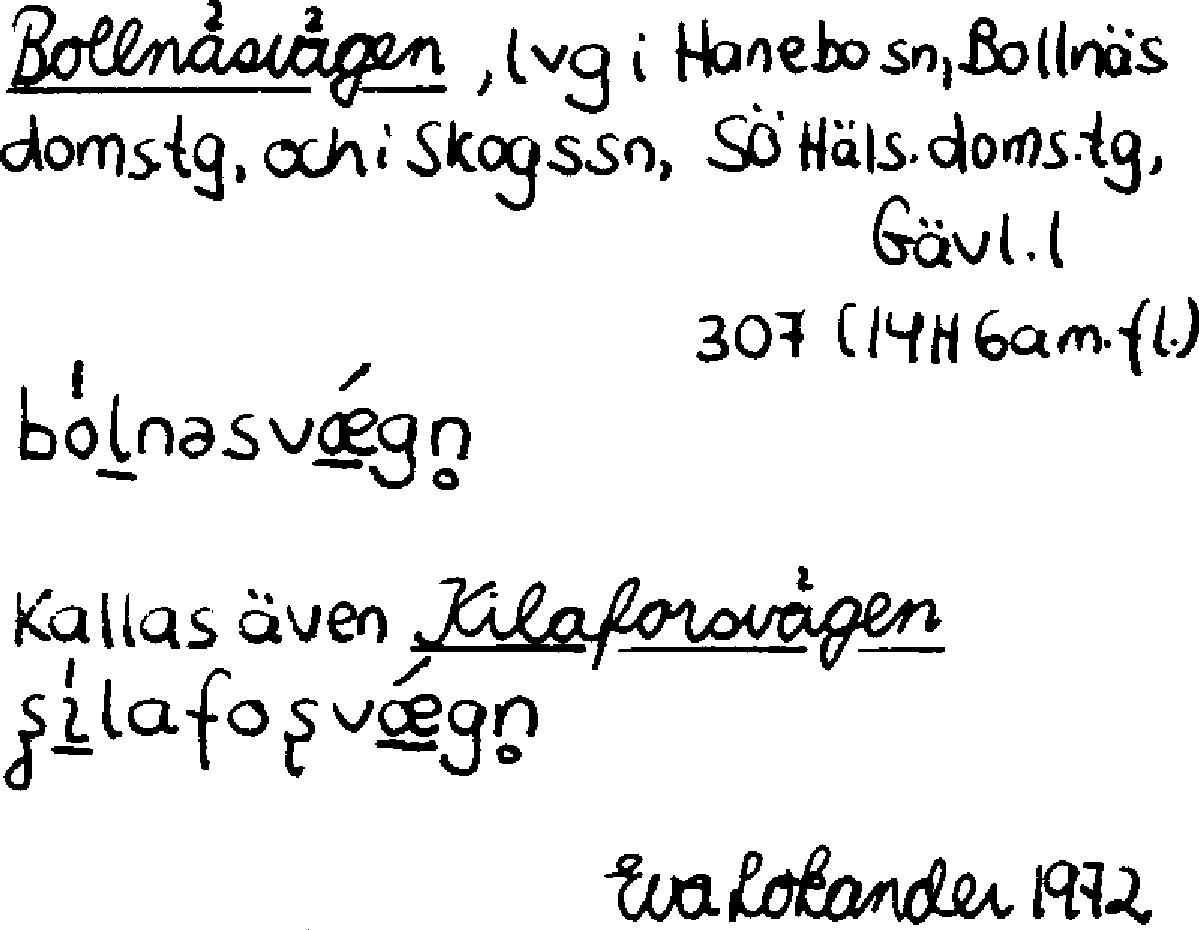 Bollnäsvägen, lvg i Hanebo sn, Bollnäs
doms.tg, och i Skogs sn, Sö Häls. doms.tg,
Gävl. l
307 (14H 6a m. fl.)
bólnəsvǽgn̥
Kallas även Kilaforsvägen
Eva Lokander 1972